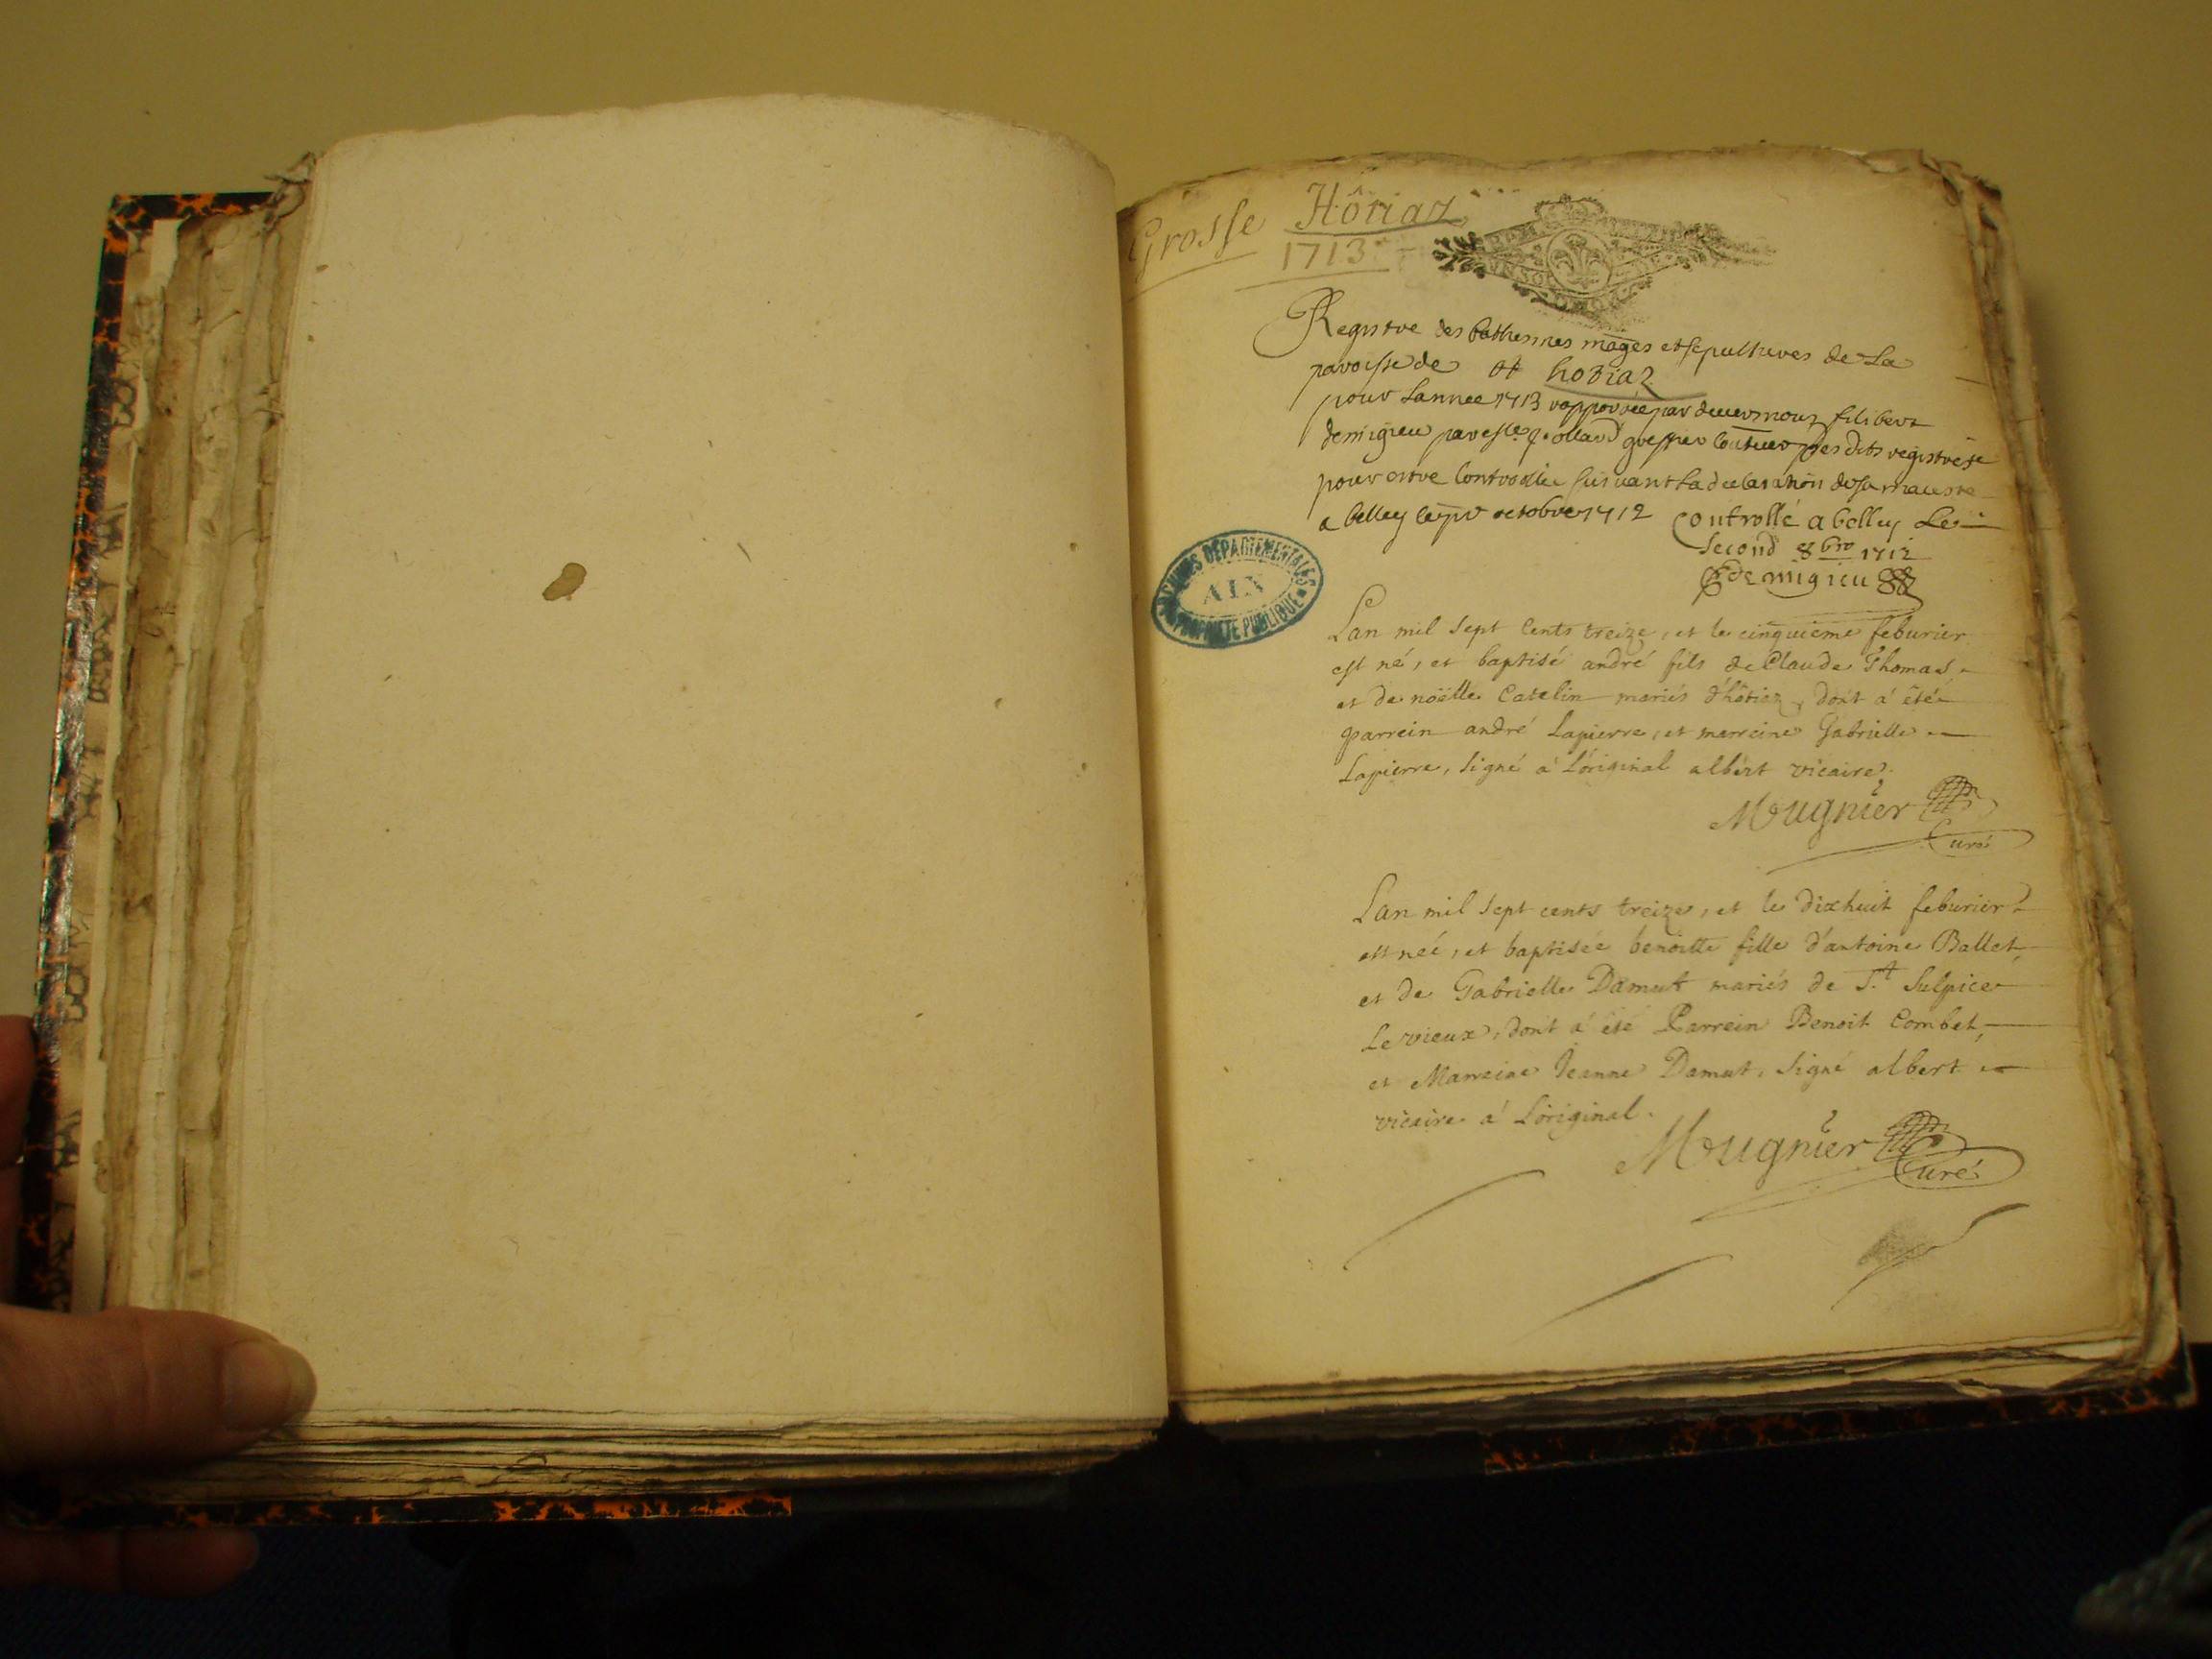 Grosse Hôtiaz
1713
Registre des bathesmes mages et sepultures de La
paroisse de hotiaz
pour Lannee 1713 par deuers nous filibert
demigieu greffier des dits registres
pour estre Controollée suiuant La declaration de sa maieste
a belley le pr octobre 1712 Controllé a belley Le
second 8bre 1712
de migieu
ARCHIVES DEPARTEMENTALES
AIN
PROPRIETE PUBLIQUE
Lan mil sept Cents treize, et le cinquieme feburier
est né, et baptisé andré fils de Claude Thomas
et de noëlle Catelin mariés d'hôtiaz, dont á été
parrein andré Lapierre, et marreine Gabrielle
Lapierre, signé á L'original albert vicaire.
Mugnier
Curé
Lan mil sept cents treize, et le dixhuit feburier
est neé, et baptisée benoitte fille d'antoine Ballet,
et de Gabrielle Damut mariés de S.t Sulpice
Le vieux, dont á été Parrein Benoit Combet,
et Marreine Jeanne Damut, signé albert
vicaire á L'original.
Mugnier
Curé